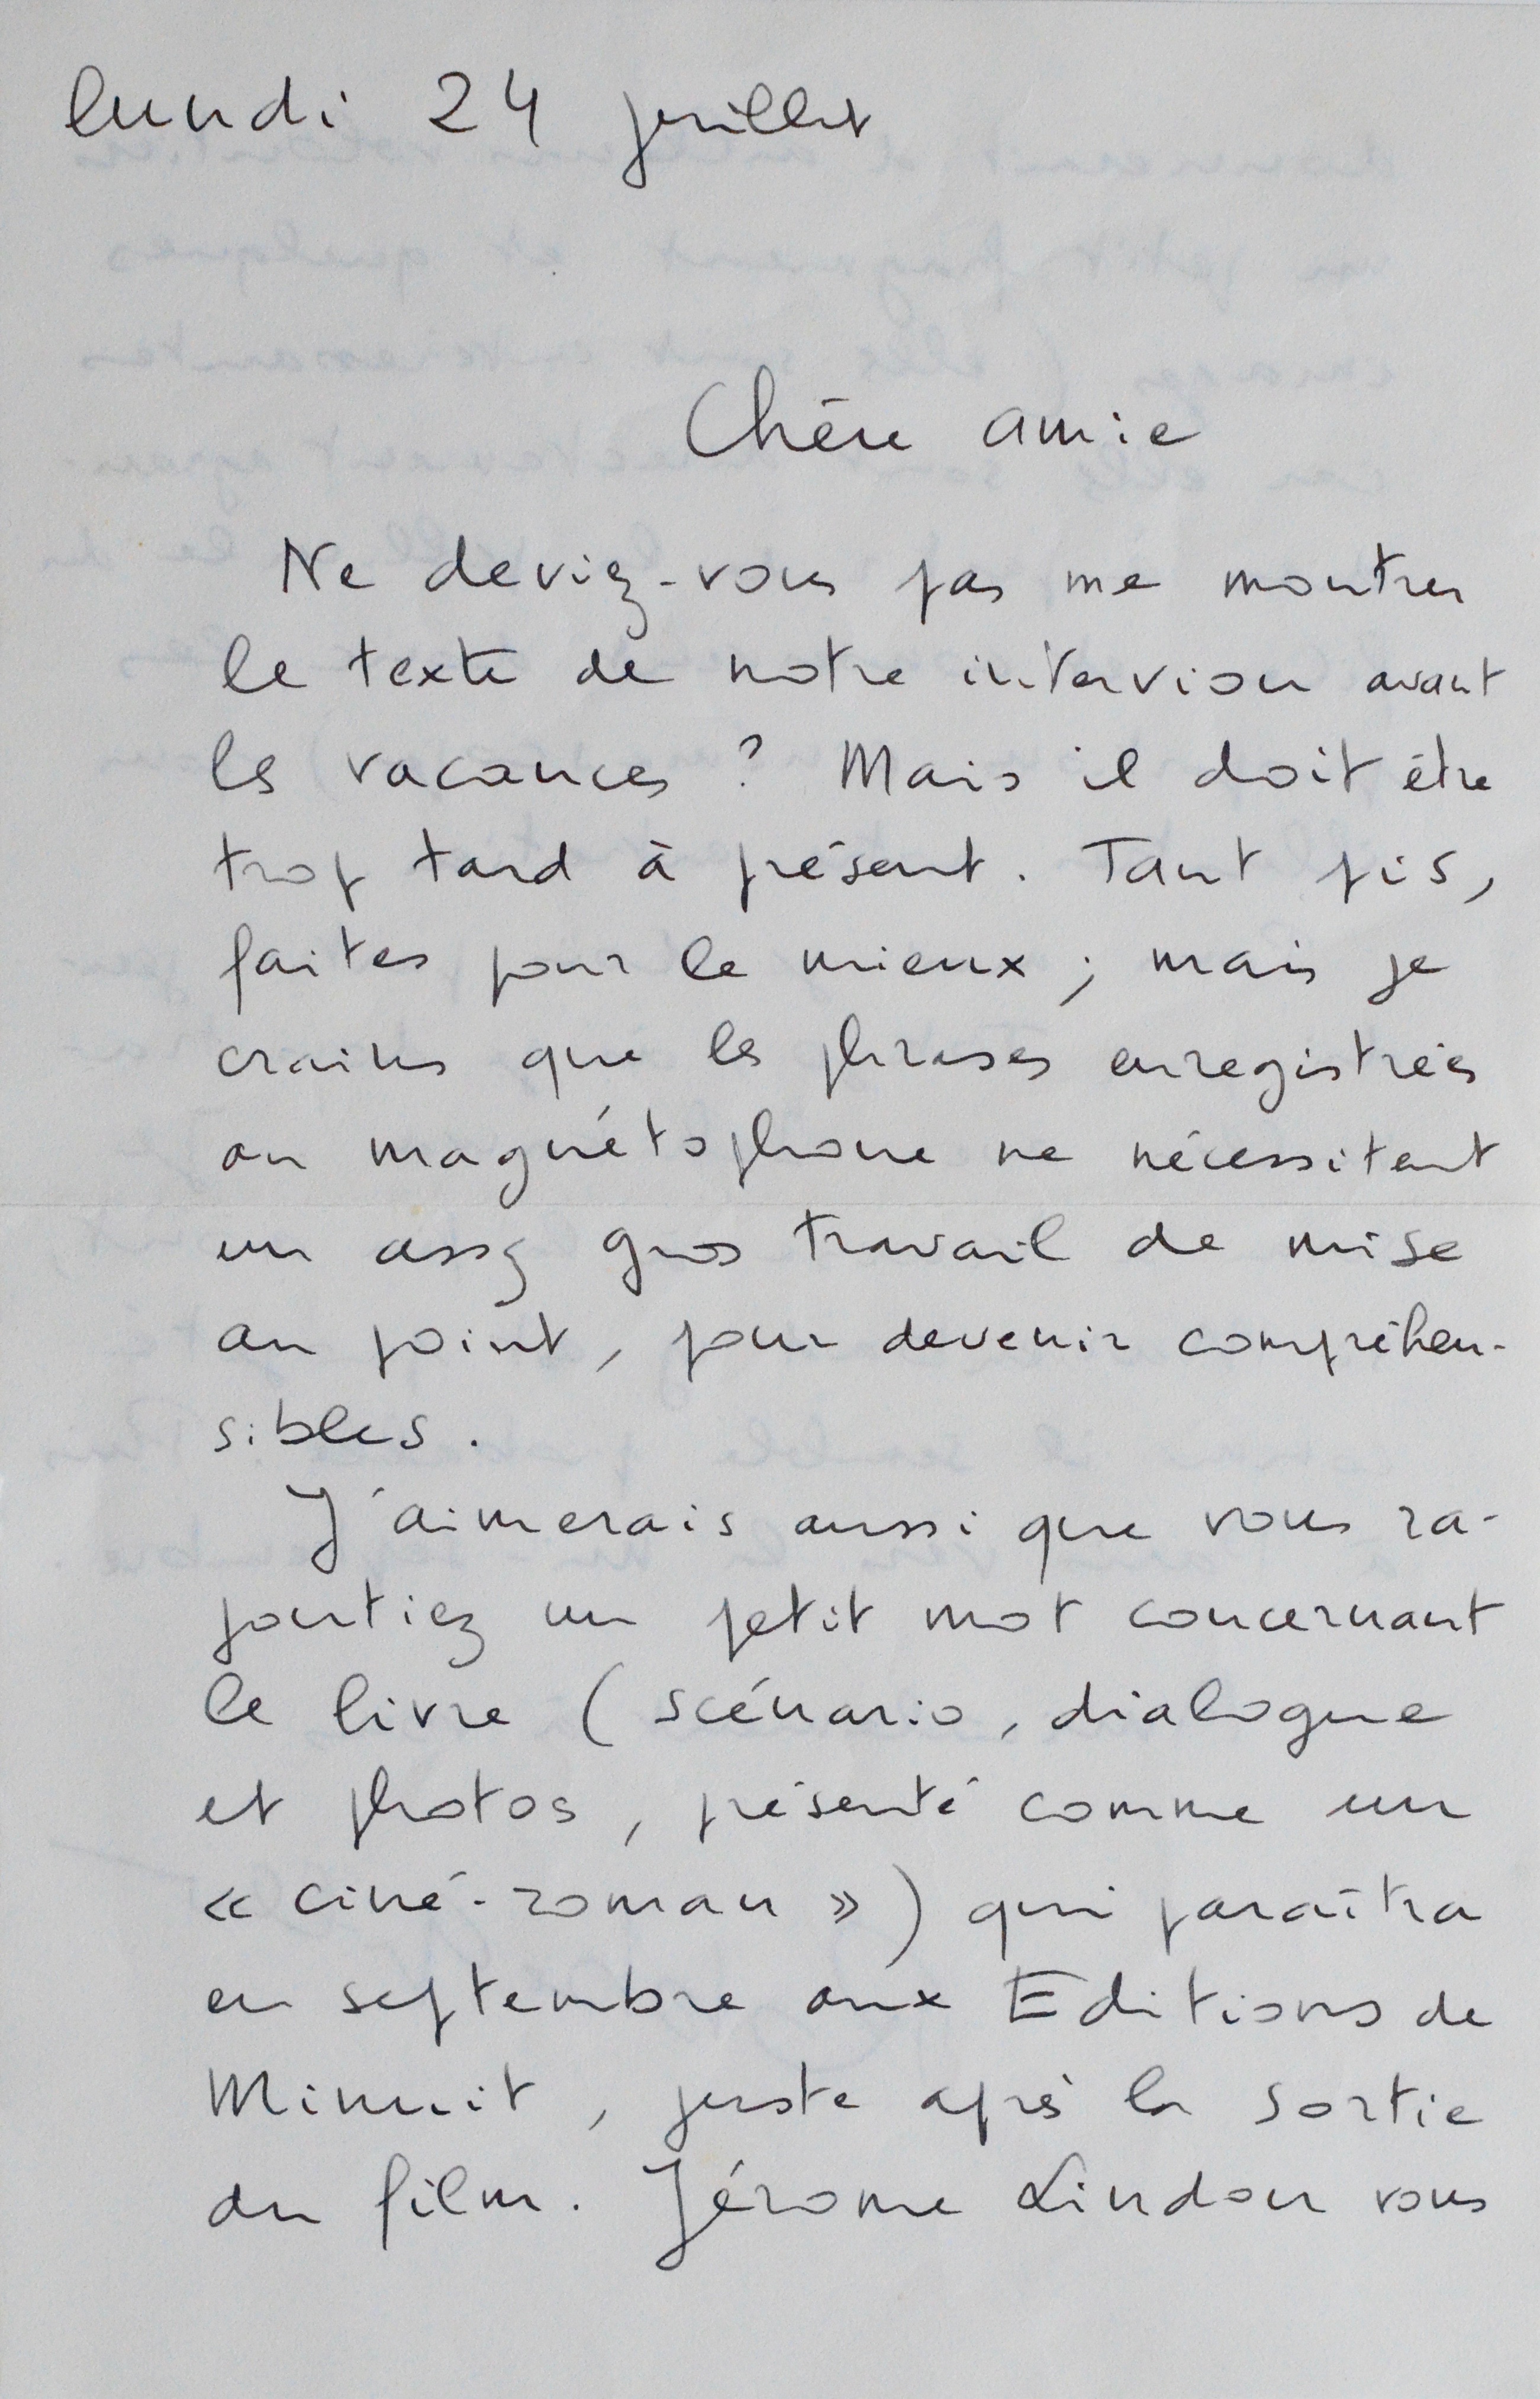 lundi 24 juillet
Chère amie
Ne deviez-vous pas me montrer
le texte de notre interview avant
les vacances ? Mais il doit être
trop tard à présent. Tant pis,
faites pour le mieux ; mais je
crains que les phrases enregistrées
au magnétophone ne nécessitent
un assez gros travail de mise
au point, pour devenir compréhen-
sibles.
J'aimerais aussi que vous ra-
joutiez un petit mot concernant
le livre (scénario, dialogue
et photos, présenté comme un
« ciné-roman ») qui paraîtra
en septembre aux Editions de
Minuit, juste après la sortie
du film. Jérome Lindon vous